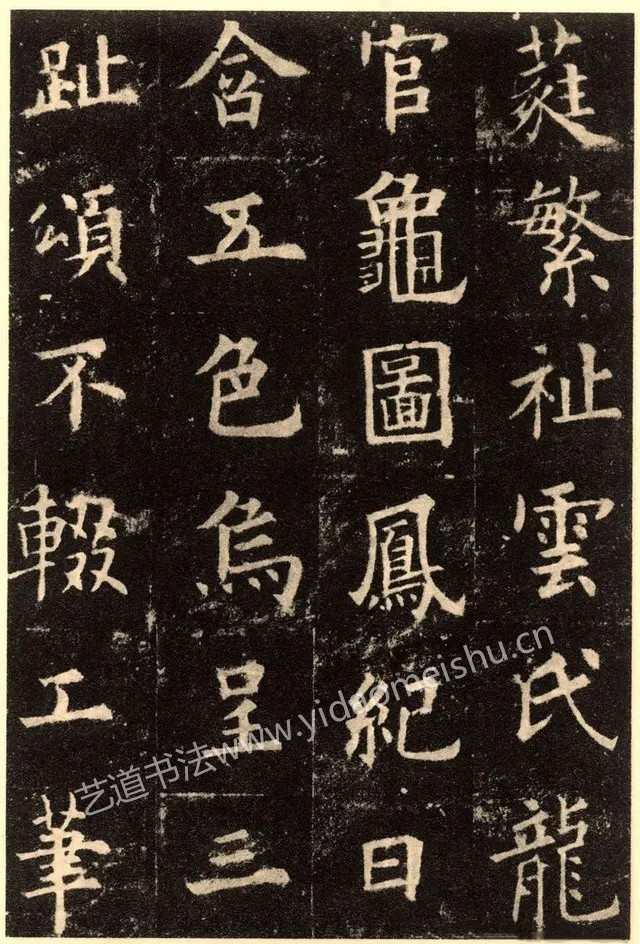 蕤繁祉雲氏龍
官龜圖鳳紀日
含五色烏呈三
趾頌不輟工筆
艺道书法www.yidaomeishu.cn